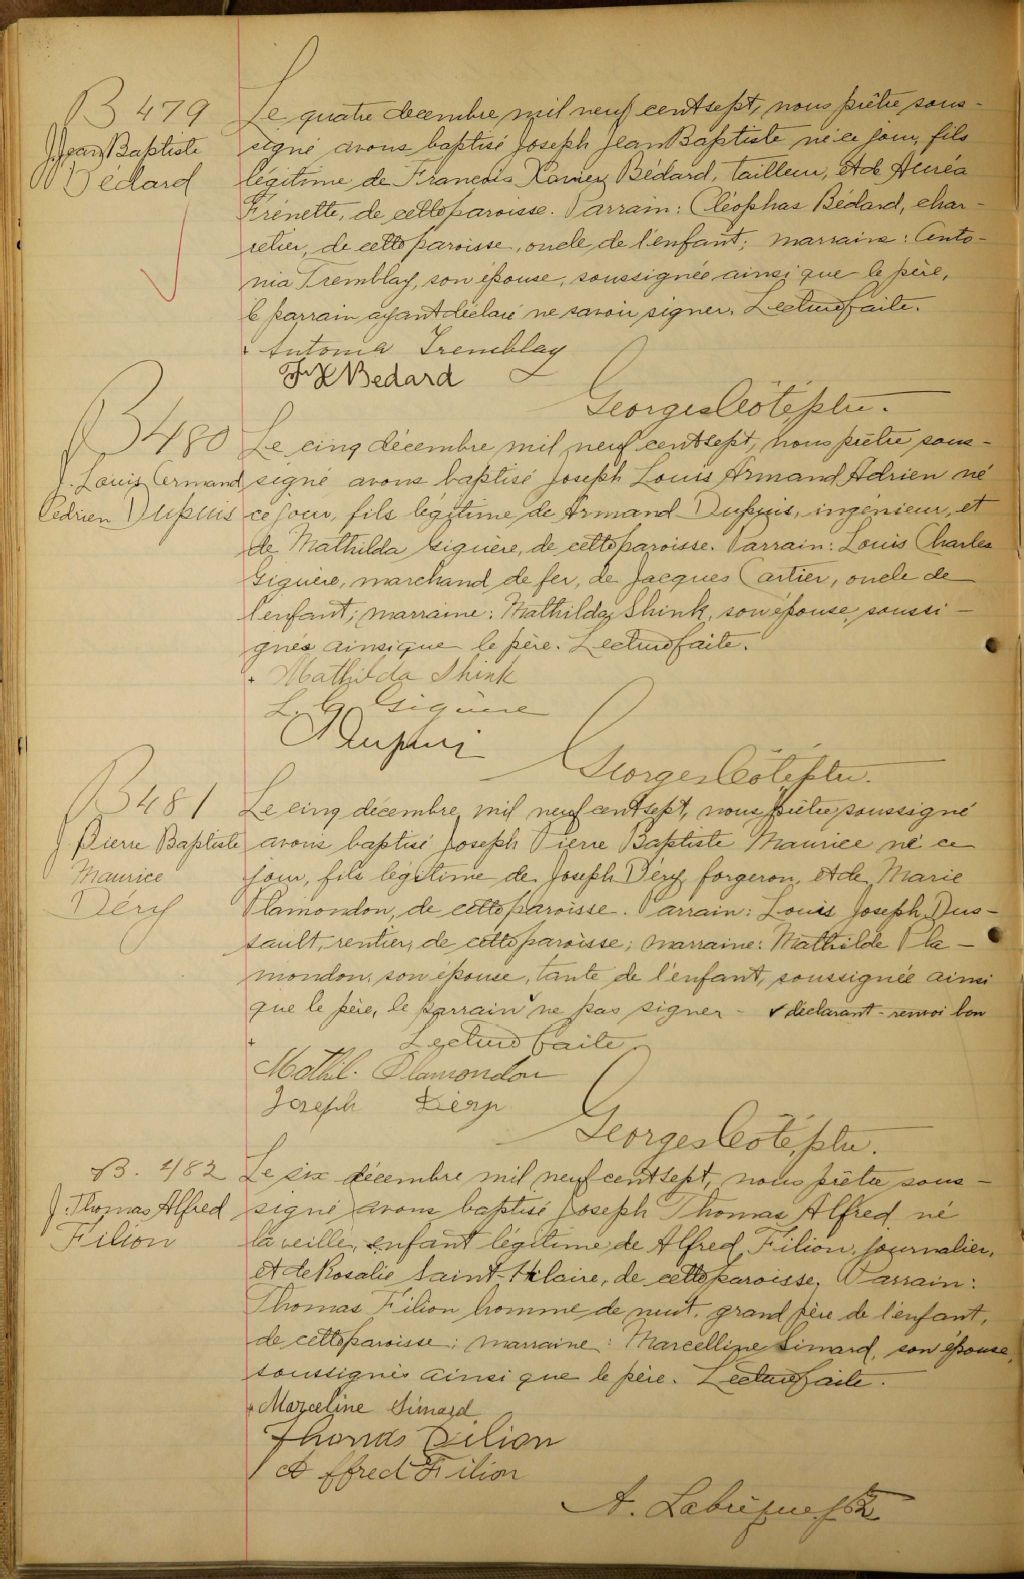 B 479
J. Jean Baptiste
Bédard
Le quatre decembre mil neuf cent sept, nous prêtre sous-
signé avons baptisé Joseph Jean Baptiste né ce jour, fils
légitime de Francois Xavier Bédard, tailleur, et de Auréa
Frénette, de cette paroisse. Parrain: Cléophas Bédard, char-
retier, de cette paroisse, oncle de l'enfant; marraine: Anto-
nia Tremblay, son épouse, soussignée ainsi que le père,
le parrain ayant déclaré ne savoir signer. Lecture faite.
+ Antonia Tremblay
F X Bedard
Georges Côté, ptre.
B 480
J. Louis Armand
Adrien Dupuis
Le cinq décembre mil neuf cent sept, nous prêtre sous-
signé avons baptisé Joseph Louis Armand Adrien né
ce jour, fils légitime de Armand Dupuis, ingénieur, et
de Mathilda Giguère, de cette paroisse. Parrain: Louis Charles
Giguère, marchand de fer, de Jacques Cartier, oncle de
l'enfant; marraine: Mathilda Shink, son épouse, soussi-
gnés ainsi que le père. Lecture faite.
+ Mathilda Shink
L. G. Giguère
A Dupuis
Georges Côté, ptre.
B 481
J. Pierre Baptiste
Maurice
Déry
Le cinq decembre mil neuf cent sept, nous prêtre soussigné
avons baptisé Joseph Pierre Baptiste Maurice né ce
jour, fils légitime de Joseph Déry forgeron, et de Marie
Plamondon, de cette paroisse. Parrain: Louis Joseph Dus-
sault, rentier, de cette paroisse; marraine: Mathilde Pla-
mondon, son épouse, tante de l'enfant, soussignée ainsi
que le père, le parrain ✓ ne pas signer - ✓ déclarant - renvoi bon
+ Lecture faite.
Mathil. Plamondon
Joseph Déry
Georges Côté, ptre.
B. 482
J. Thomas Alfred
Filion
Le six décembre mil neuf cent sept, nous prêtre sous-
signé avons baptisé Joseph Thomas Alfred né
la veille, enfant légitime de Alfred Filion, journalier,
et de Rosalie Saint-Hilaire, de cette paroisse. Parrain:
Thomas Filion homme de nuit, grand père de l'enfant,
de cette paroisse; marraine: Marcelline Simard, son épouse,
soussignés ainsi que le père. Lecture faite.
+ Marceline Simard
Thomas Filion
Alfred Filion
A. Labrèque